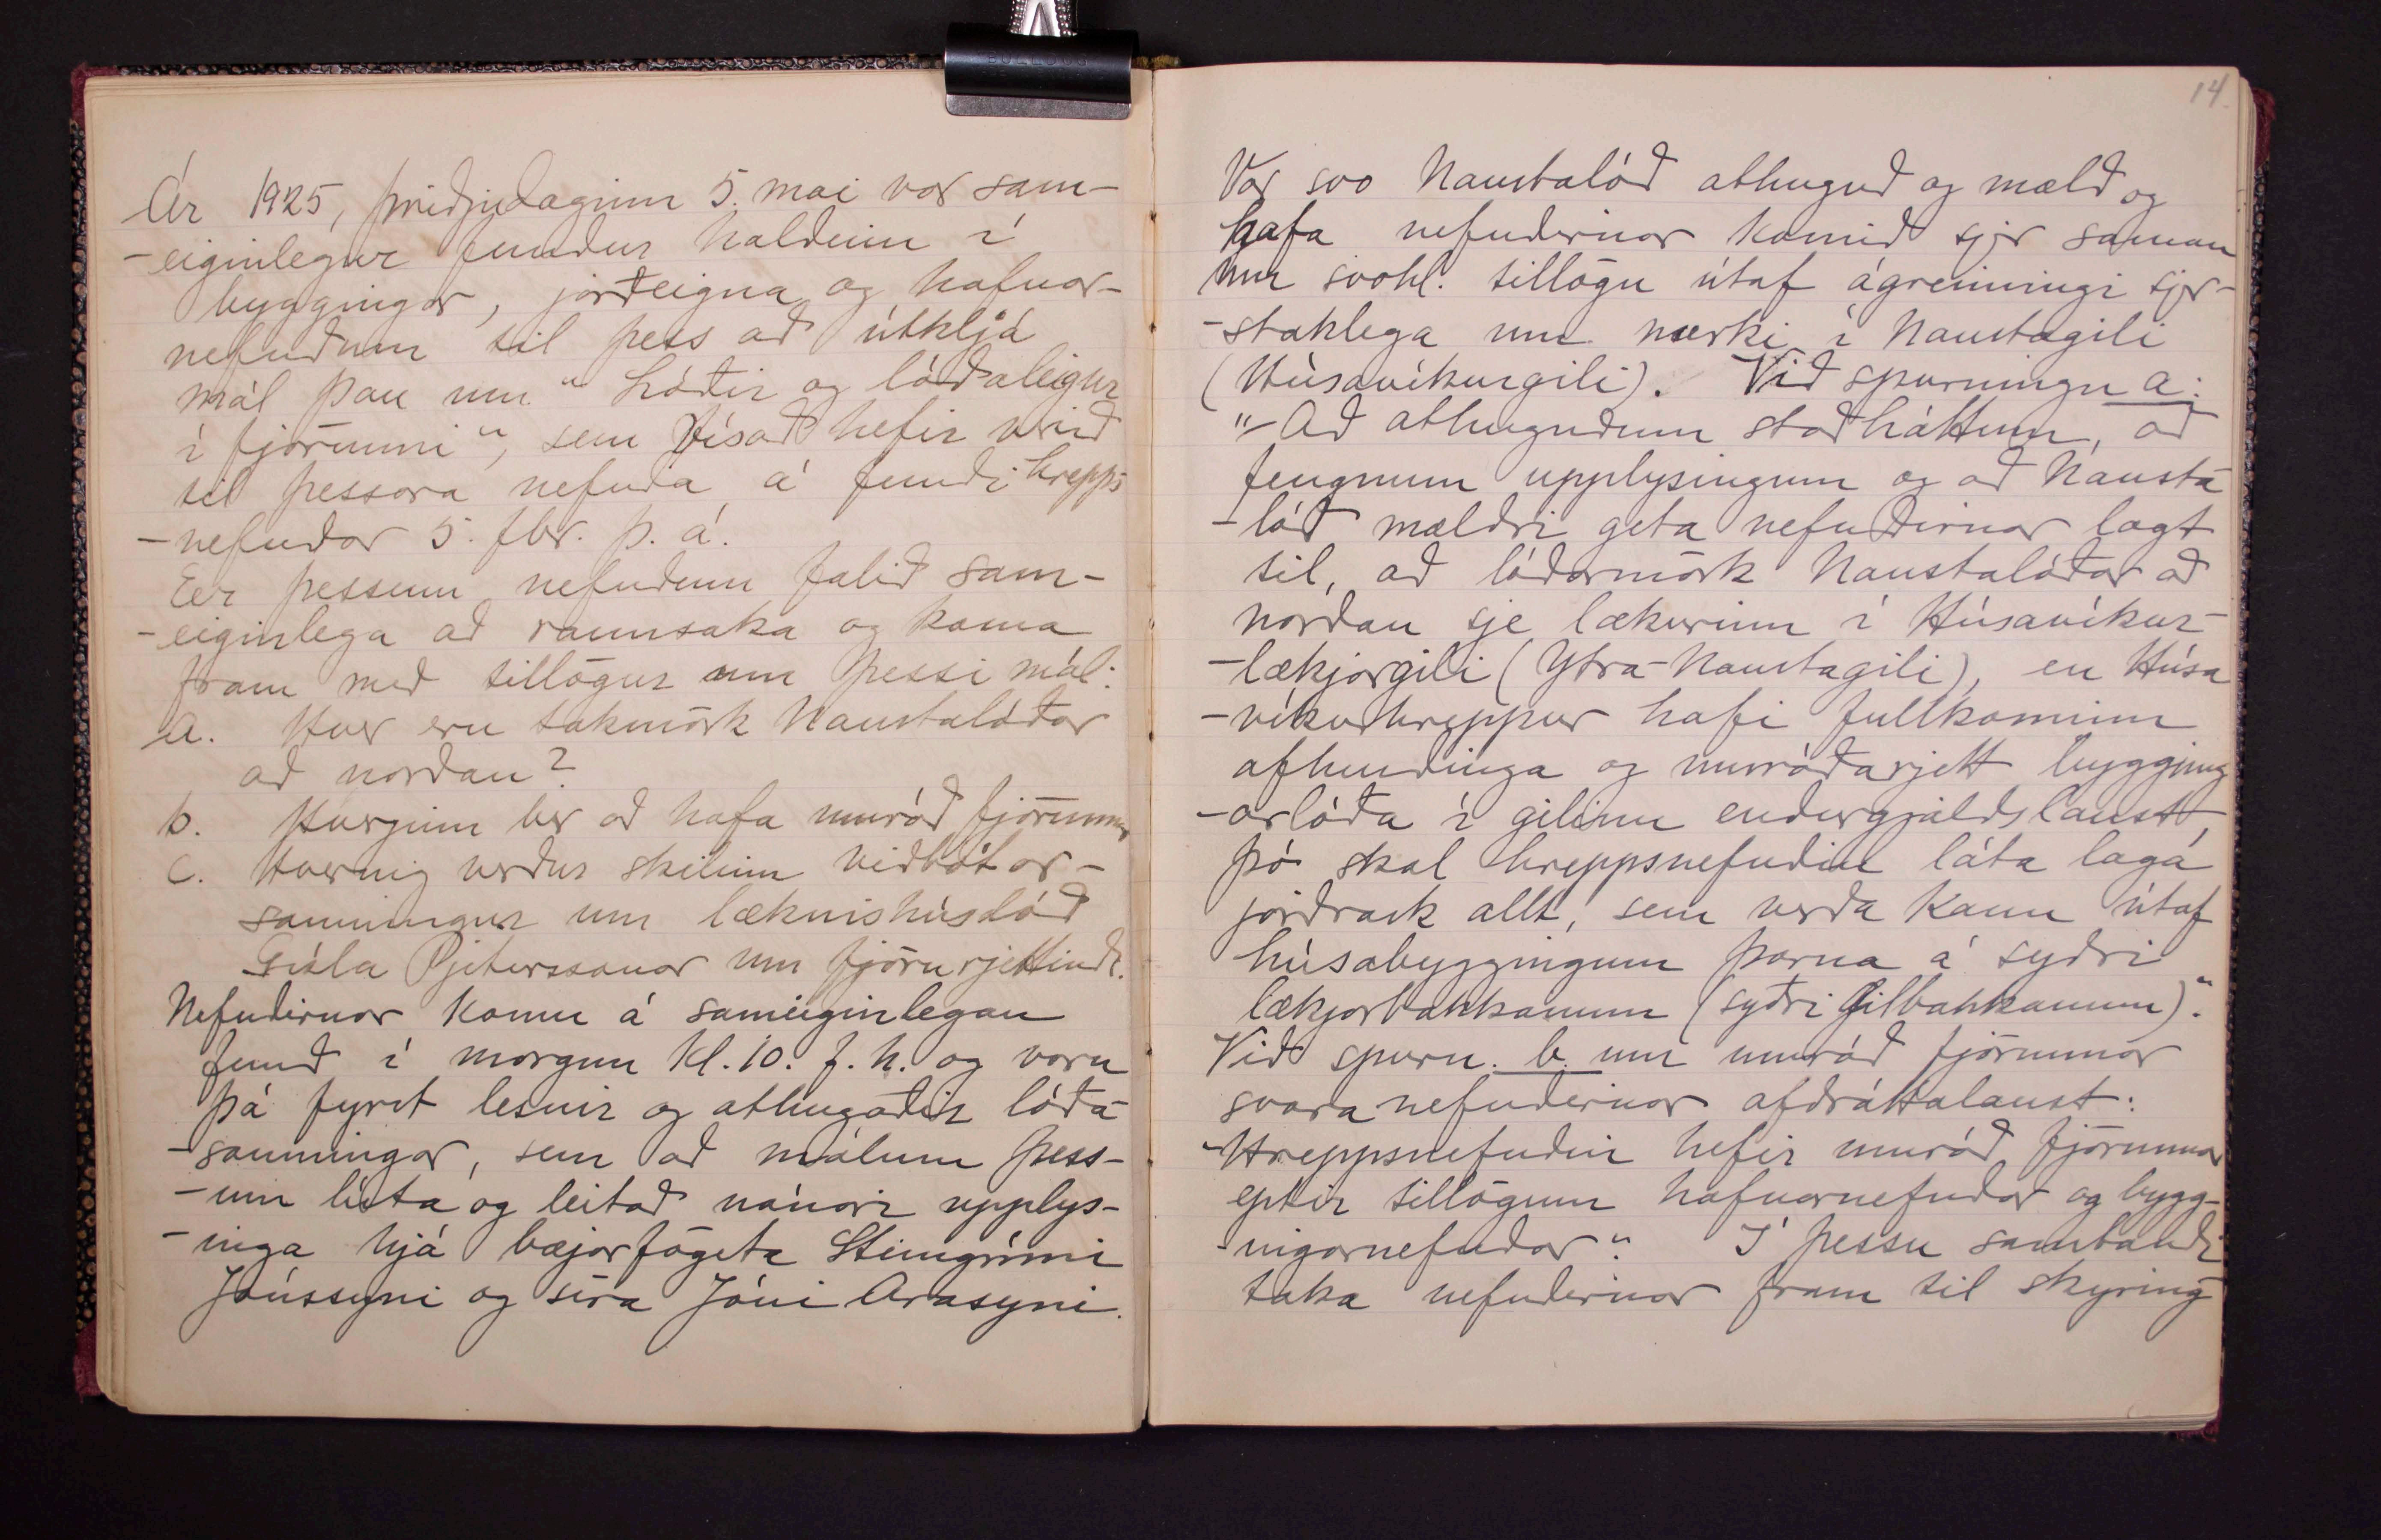 Ár 1925, þriðjudaginn 5. mai var sam-
-eiginlegur fundur haldinn í
byggingar, jarðeigna og hafnar-
nefndum til þess að útkljá
mál þau um "Lóðir og lóðaleigur
í fjörunni", sem vísað hefir verið
til þessara nefnda á fundi hrepps
-nefndar 5. fbr. þ. á.
Er þessum nefndum falið sam-
-eiginlega að rannsaka og koma
fram með tillögur um þessi mál:
a. Hver eru takmörk Naustalóðar
að norðan?
b. Hverjum ber að hafa umráð fjörunnar
c. Hvernig verður skilinn viðbótar-
samningur um læknishúslóð
Gísla Pjeturssonar um fjöruréttindi.
Nefndirnar komu á sameiginlegan
fund í morgun kl. 10. f. h. og voru
þá fyrst lesnir og athugaðir lóða-
-samningar, sem að málum þess-
-um lúta og leitað nánari upplýs-
-inga hjá bæjarfógeta Steingrími
Jónssyni og síra Jóni Arasyni.
14
Var svo Naustalóð athuguð og mæld og
hafa nefndirnar komið sjer saman
um svohl. tillögu útaf ágreiningi sjer-
-staklega um merki í Naustagili
(Húsavíkurgili). Við spurningu a:
"Að athuguðum staðháttum, að
fengnum upplýsingum og að Nausta-
-lóð mældri geta nefndirnar lagt
til, að lóðarmörk Naustalóðar að
norðan sje lækurinn í Húsavíkur-
-lækjargili (Ytra-Naustagili), en Húsa
-víkurhreppur hafi fullkominn
afhendinga og umráðarjett bygging
-arlóða í gilinu endurgjaldslaust,
þó skal hreppsnefndin láta laga
jarðrask allt, sem verða kann útaf
húsabyggingum þarna á syðri
lækjarbakkanum (syðri gilbakkanum)."
Við spurn. b. um umráð fjörunnar
svara nefndirnar afdráttalaust:
"Hreppsnefndin hefir umráð fjörunnar
eptir tillögum hafnarnefndar og bygg-
-ingarnefndar". Í þessu sambandi
taka nefndirnar fram til skýring